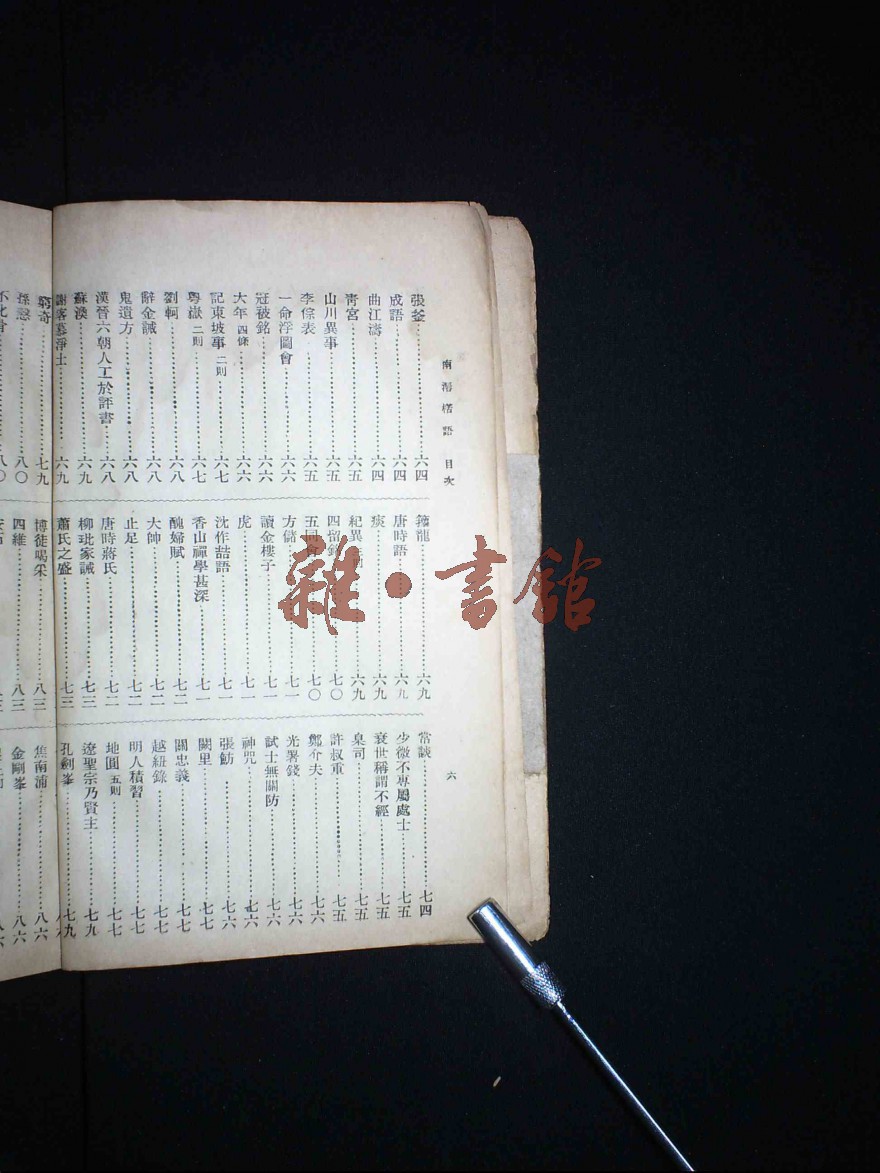 南漘楛語 目次
六
張釜⋯⋯六四
成語⋯⋯六四
曲江濤⋯⋯六四
靑宮⋯⋯六五
山川異事⋯⋯六五
李倧表⋯⋯六五
一命浮圖會⋯⋯六六
冠被銘⋯⋯六六
大年 四條⋯⋯六六
記東坡事 二則⋯⋯六七
粤嶽 二則⋯⋯六七
劉軻⋯⋯六八
辭金誠⋯⋯六八
鬼遺方⋯⋯六八
漢晉六朝人工於評書⋯⋯六八
蘇渙⋯⋯六九
謝客慕淨土⋯⋯六九
籜龍⋯⋯六九
唐時語⋯⋯六九
痰⋯⋯六九
紀異 則⋯⋯六九
四留銘⋯⋯七〇
五同會⋯⋯七〇
方儲⋯⋯七一
讀金樓子⋯⋯七一
虎⋯⋯七一
沈作喆語⋯⋯七一
香山禪學甚深⋯⋯七一
醜婦賦⋯⋯七二
大帥⋯⋯七二
止足⋯⋯七二
唐時蔣氏⋯⋯七二
柳玭家誡⋯⋯七三
蕭氏之盛⋯⋯七三
常談⋯⋯七四
少微不專屬處士⋯⋯七五
衰世稱謂不經⋯⋯七五
臬司⋯⋯七五
許叔重⋯⋯七五
鄭介夫⋯⋯七六
光署錢⋯⋯七六
試士無關防⋯⋯七六
神咒⋯⋯七六
張魴⋯⋯七六
闕里⋯⋯七七
關忠義⋯⋯七七
越紐錄⋯⋯七七
明人積習⋯⋯七七
地圓 五則⋯⋯七七
遼聖宗乃賢主⋯⋯七九
孔劍峯⋯⋯七九
窮奇⋯⋯七九
孫愨⋯⋯八〇
八〇
博徒喝采⋯⋯八三
四維⋯⋯八三
焦南浦⋯⋯八六
金剛峯⋯⋯八六
雜·書館